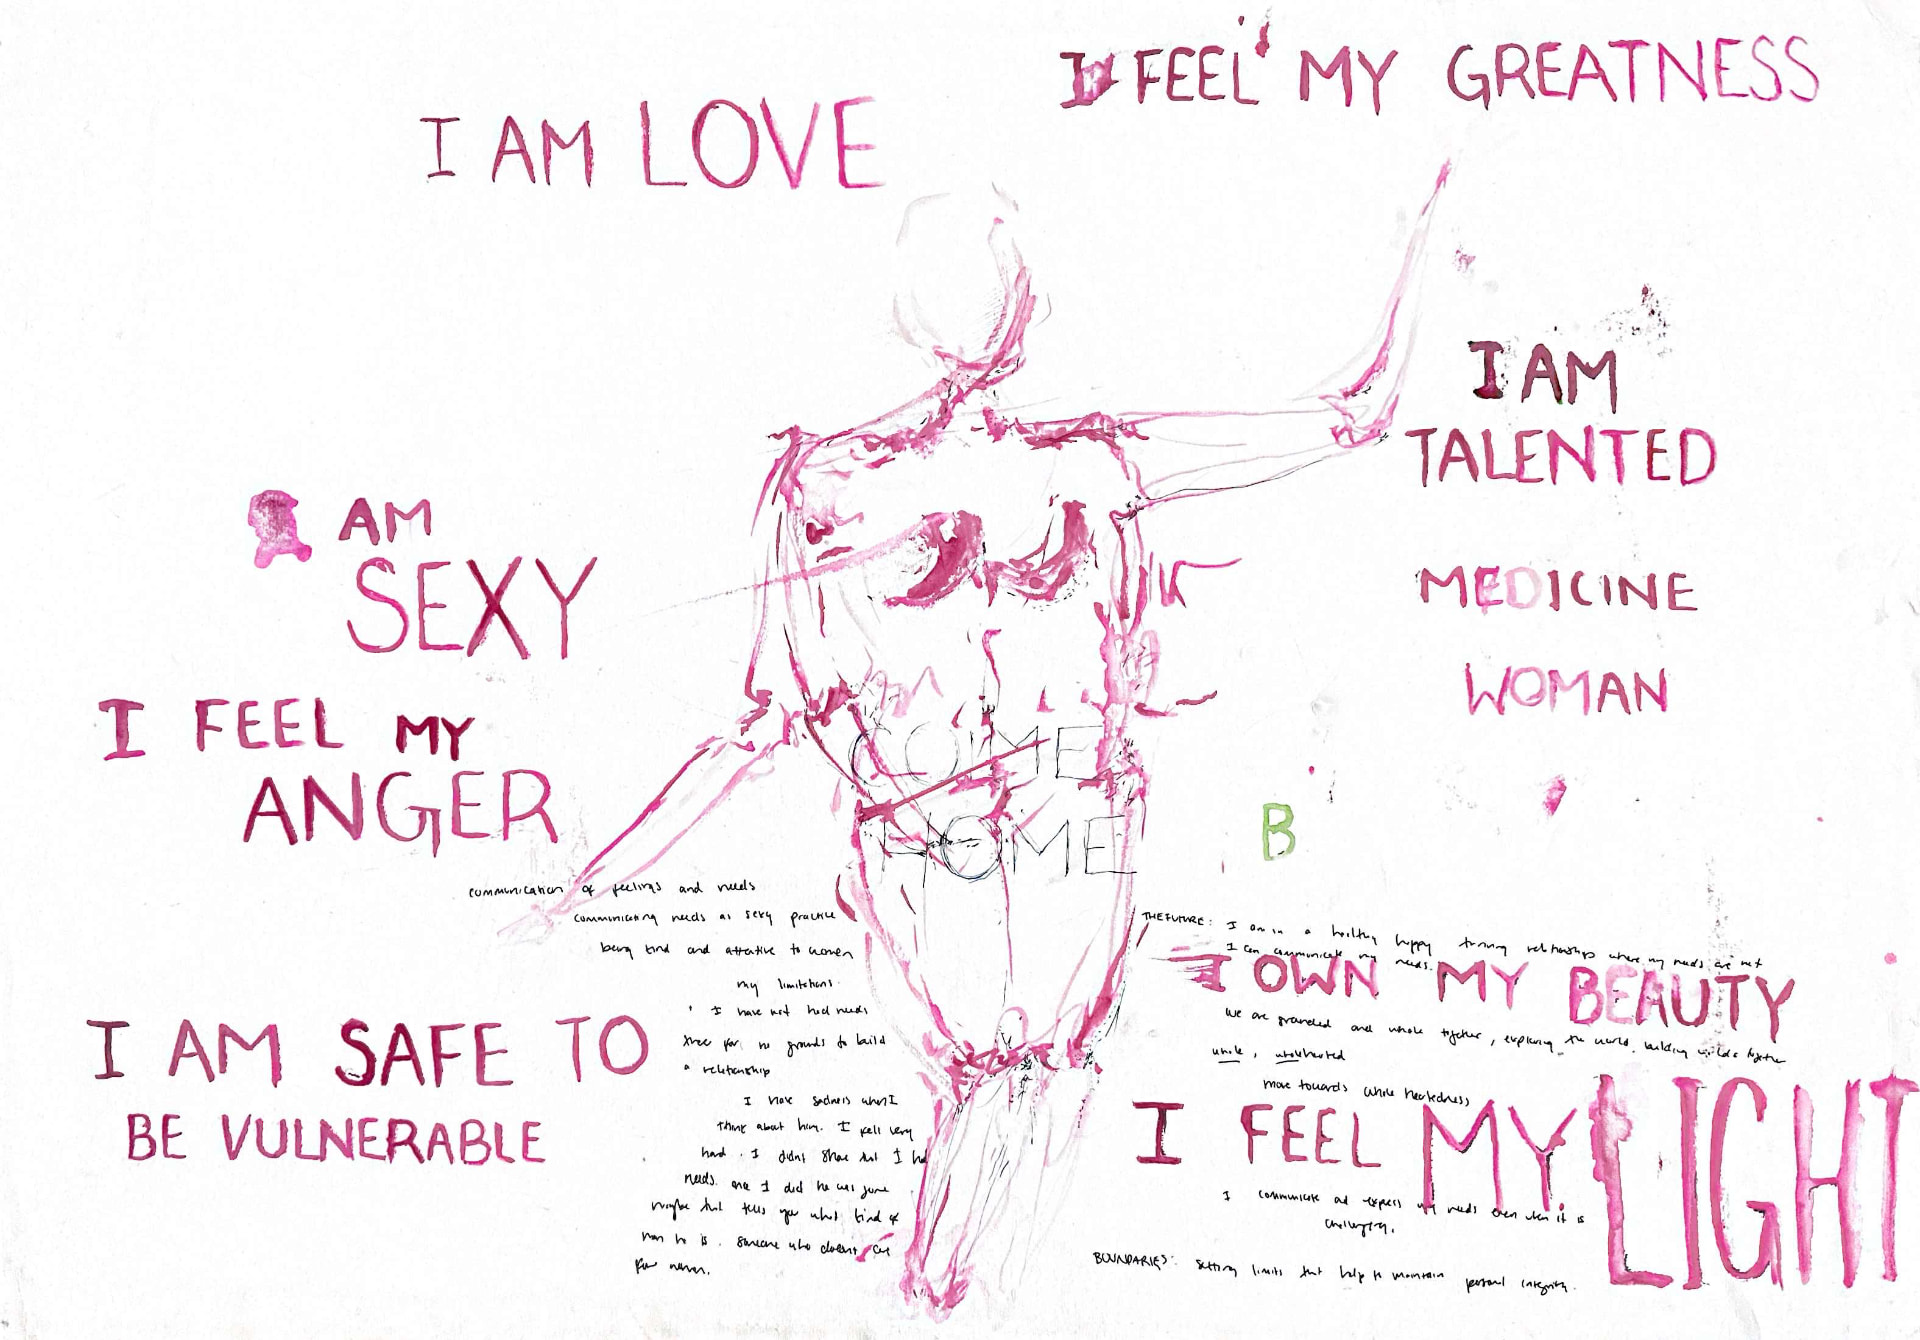 I FEEL MY GREATNESS
I AM LOVE
I AM
TALENTED
MEDICINE
WOMAN
AM
SEXY
I FEEL MY
ANGER
COME
HOME
B
communication of feelings and needs
communicating needs as sexy practice
being kind and attentive to women
my limitations.
I have not had needs
no grounds to build
a relationship
I have sadness when I
think about him. I fell very
hard. I didnt share that I had
needs. once I did he was gone
maybe that tells you what kind of
man he is. someone who doesnt care
for women.
I AM SAFE TO
BE VULNERABLE
THE FUTURE: I am in a healthy happy relationships where my needs are met
I can communicate my needs.
I OWN MY BEAUTY
we are grounded and whole together, exploring the world, building worlds together
whole, wholehearted
move towards whole heartedness
I FEEL MY LIGHT
I communicate and express my needs even when it is
challenging.
BOUNDARIES: setting limits that help to maintain personal integrity.